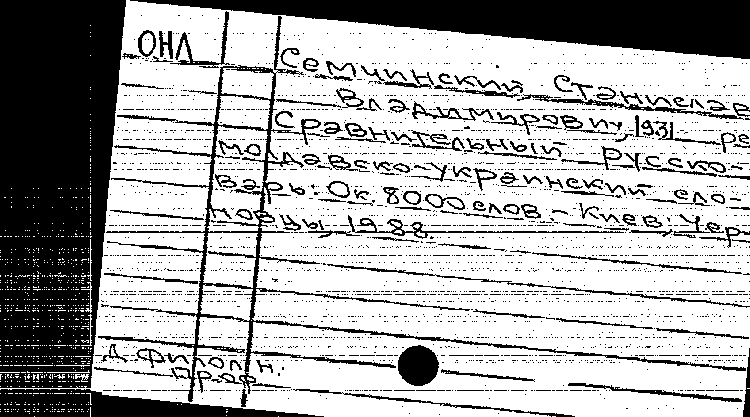 ОНЛ
Семчинский, Станислав
Владимирович, 1931 ре
Сравнительный русско-
молдавско-украинский сло-
варь: Ок. 8000 слов. - Киев; Чер-
новцы, 1988.
Д. филол. н.
проф.